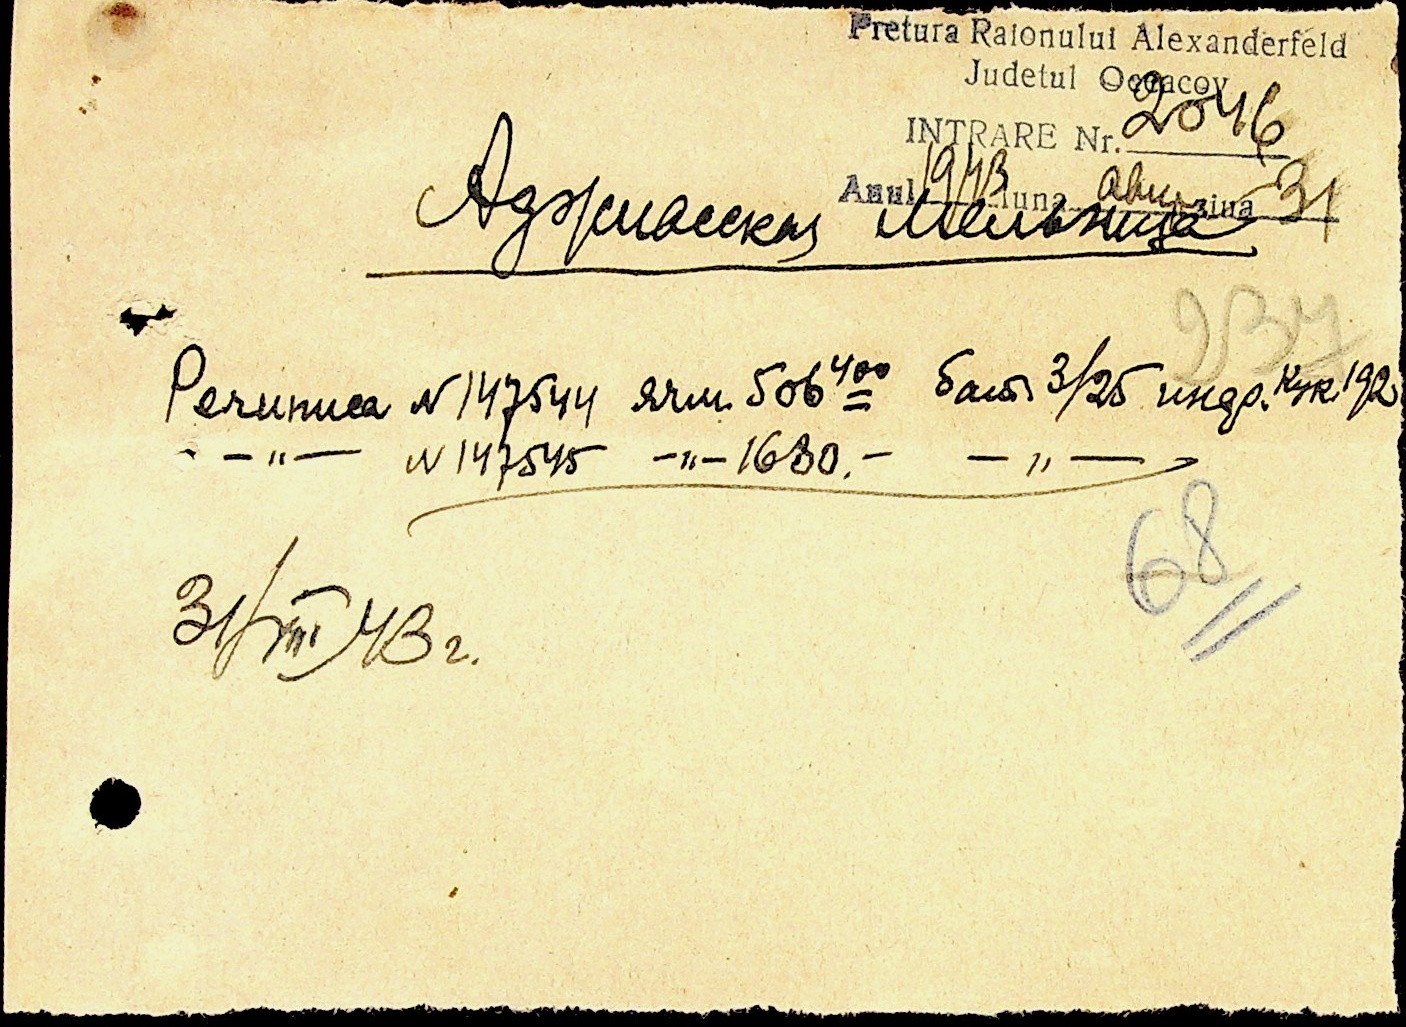 Pretura Raionului Alexanderfeld
Judetul Oceacov
INTRARE Nr. 2046
Anul 1943 luna авг. ziua 31
Аджиасская Мельница
937
Рециписа N 147544 ячм. 506400 бат 3/25 индр. кук. 192
— " — N 147545 — " — 1680. — — " —
68
31/VIII 43 г.